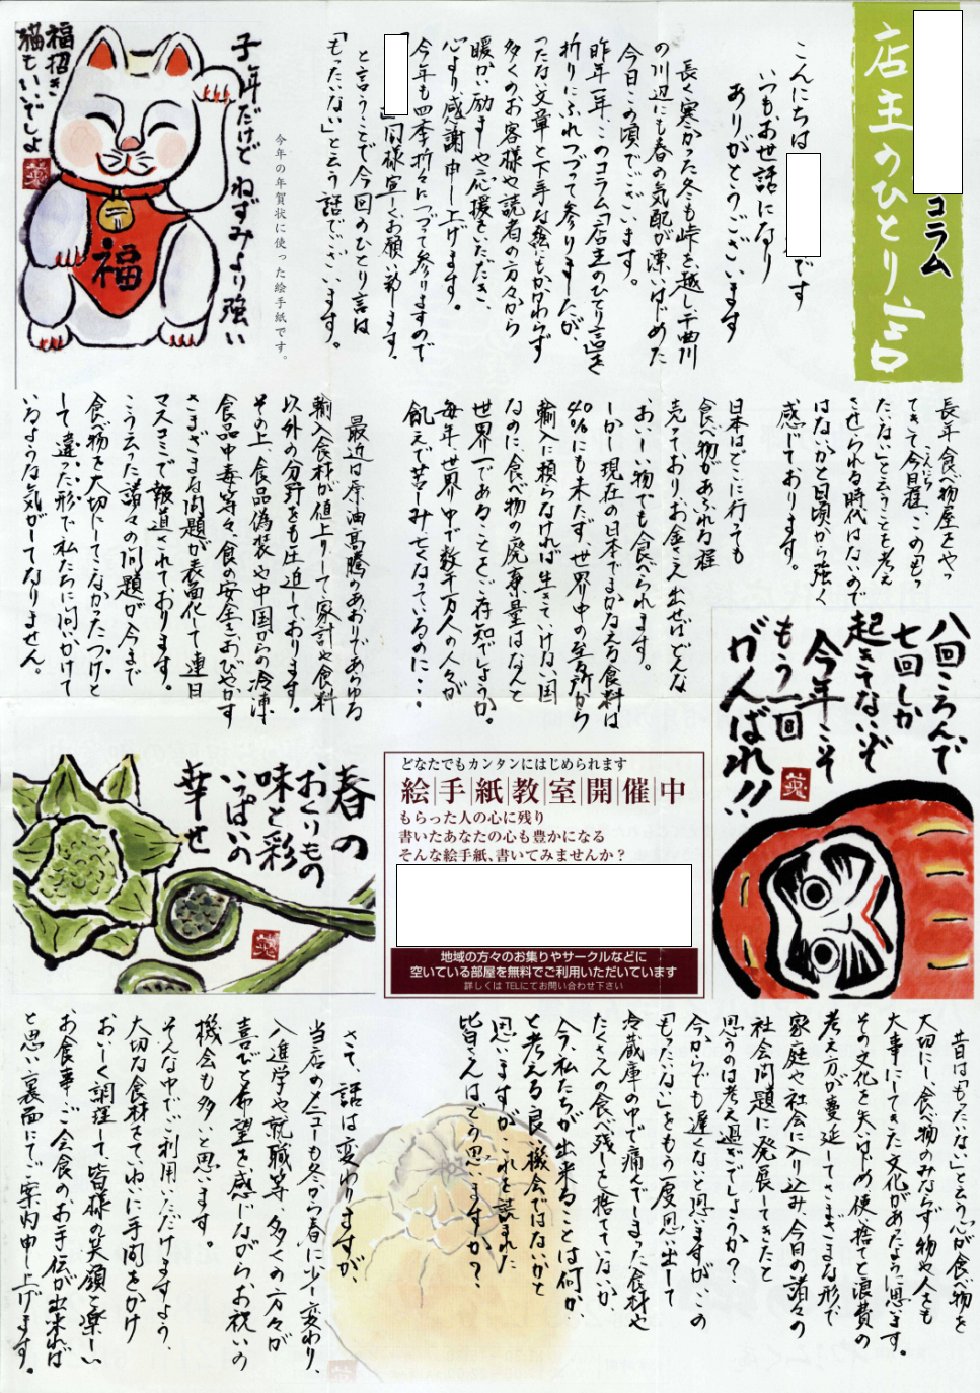 コラム
店主のひとり言
こんにちは
です
いつもお世話になり
ありがとうございます
長く寒かった冬も峠を越し、千曲川
の川辺にも春の気配が漂いはじめた
今日この頃でございます。
昨年一年、このコラム「店主のひとり言」を
折りにふれつづって参りましたが、
つたない文章と下手な絵にもかかわらず
多くのお客様や読者の方々から
暖かい励ましや応援をいただき、
心より感謝申し上げます。
今年も四季折々につづって参りますので
「
」同様宜しくお願い致します。
と言うことで今回のひとり言は
「もったいない」と云う話でございます。
今年の年賀状に使った絵手紙です。
子年だけど ねずみより強い
福招き
猫もいいでしょ
福
長年、食べ物屋をやっ
てきて今日程、この「もっ
こんにち
たいない」と云うことを考え
させられる時代はないので
はないかと日頃から強く
感じております。
日本はどこに行っても
食べ物があふれる程
売っており、お金さえ出せばどんな
おいしい物でも食べられます。
しかし現在の日本でまかなえる食料は
40%にも未たず、世界中の至る所から
輸入に頼らなければ生きていけない国
なのに食べ物の廃棄量はなんと
世界一であることをご存知でしょうか。
毎年、世界中で数千万人の人々が
飢えで苦しみ亡くなっているのに・・・
最近は原油高騰のあおりであらゆる
輸入食材が値上りして家計や食料
以外の分野をも圧迫しております。
その上、食品偽装や中国からの冷凍
食品中毒等々、食の安全をおびやかす
さまざまな問題が表面化して連日
マスコミで報道されております。
こう云った諸々の問題が今まで
食べ物を大切にしてこなかったつけと
して違った形で私たちに問いかけて
いるような気がしてなりません。
八回ころんで
七回しか
起きてないぞ
今年こそ
もう一回
がんばれ!!
春の
おくりもの
味と彩
いっぱいの
幸せ
どなたでもカンタンにはじめられます
絵手紙教室開催中
もらった人の心に残り
書いたあなたの心も豊かになる
そんな絵手紙、書いてみませんか？
地域の方々のお集りやサークルなどに
空いている部屋を無料でご利用いただいています
詳しくは TELにてお問い合わせ下さい
昔は「もったいない」と云う心が食べ物を
大切にし食べ物のみならず物や人をも
大事にしてきた文化があったように思います。
その文化を失いはじめ使い捨てと浪費の
考え方が蔓延してさまざまな形で
家庭や社会に入り込み、今日の諸々の
社会問題に発展してきたと
思うのは考え過ぎでしょうか？
今からでも遅くないと思いますが、この
「もったいない」をもう一度思い出して
冷蔵庫の中で痛んでしまった食材や
たくさんの食べ残しを捨てていないか、
今、私たちが出来ることは何か、
と考える良い機会ではないかと
思いますが、これを読まれた
皆さんはどう思いますか？
さて、話は変わりますが、
当店のメニューも冬から春に少し変わり、
入進学や就職等、多くの方々が
喜びと希望を感じながらお祝いの
機会も多いと思います。
そんな中でご利用いただけますよう、
大切な食材をていねいに手間をかけ
おいしく調理して、皆様の笑顔と楽しい
お食事・ご会食のお手伝が出来れば
と思い裏面にてご案内申し上げます。